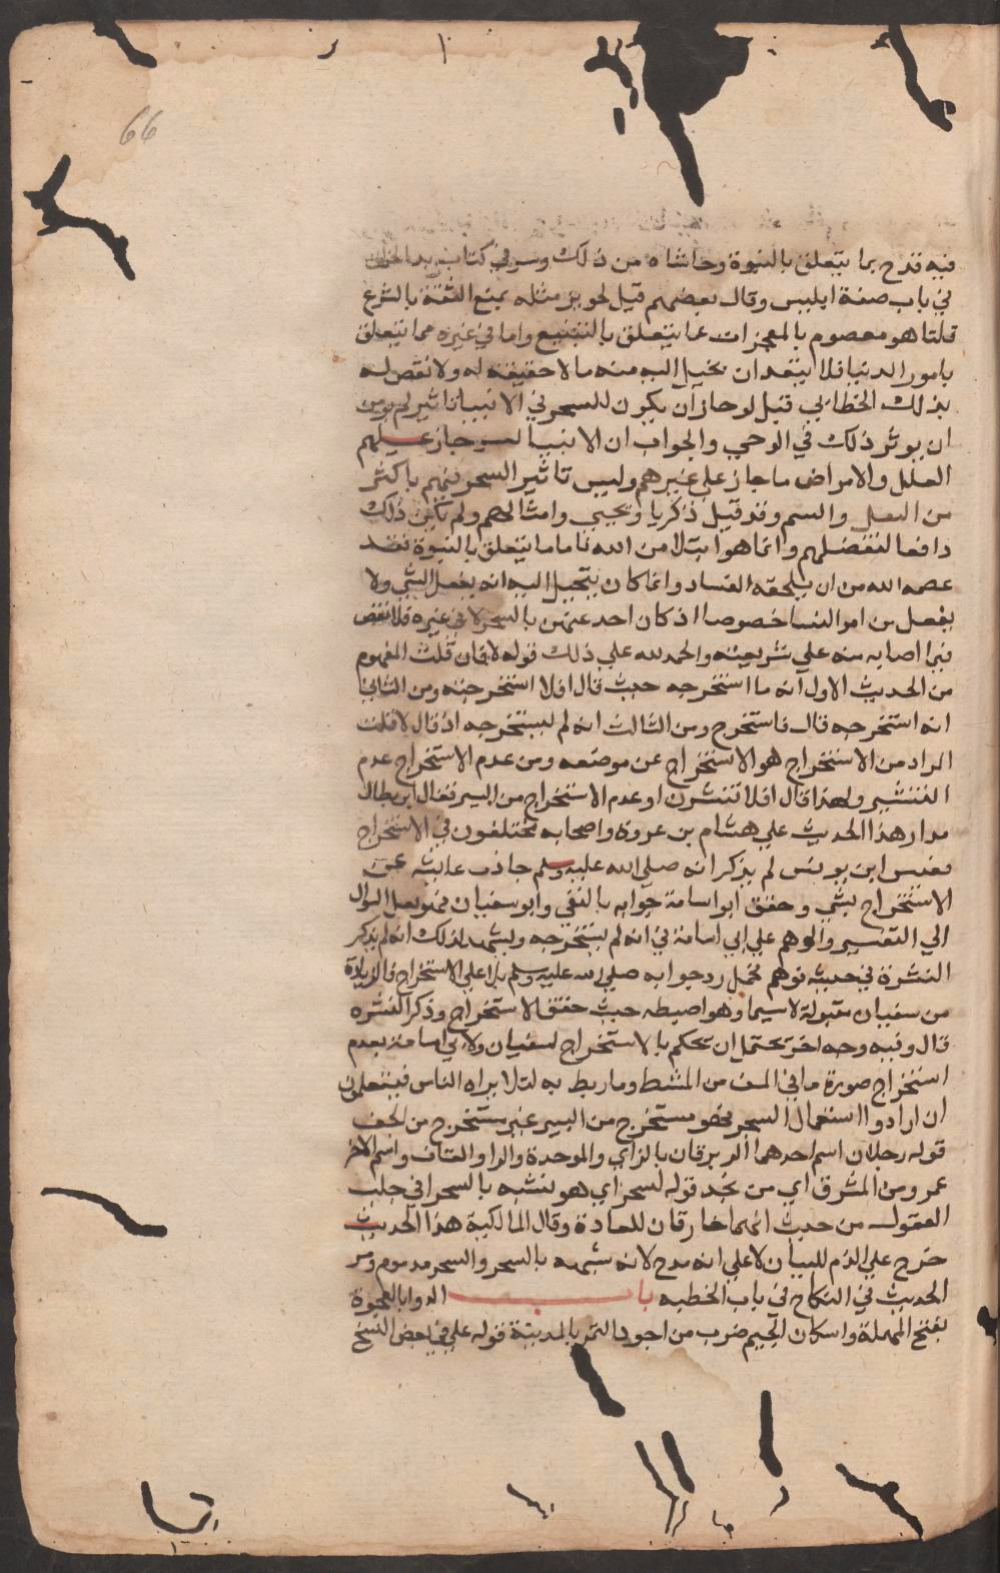 66
فيه قدح بما يتعلق بالنبوة وحاشاه من ذلك ومر في كتاب بدء الخلق
في باب صفة ابليس وقال بعضهم قيل تجويز مثله يمنع الثقة بالشرع
قلنا هو معصوم بالمعجزات عما يتعلق بالتبليغ واما في غيره مما يتعلق
بامور الدنيا فلا يبعد ان يخيل اليه منه ما لا حقيقة له ولا نقص له
بذلك الخطابي قيل لو جاز ان يكون للسحر في الانبيا تاثير لم يومن
ان يوثر ذلك في الوحي والجواب ان الانبيا يجوز عليهم
العلل والامراض ما جاز على غيرهم وليس تاثير السحر فيهم باكثر
من القتل والسم وقد قيل زكريا ويحيي وامثالهم ولم يكن ذلك
دافعا لفضلهم وانما هو ابتلا من الله تعالى اما ما يتعلق بالنبوة فقد
عصمه الله من ان يلحقه الفساد وانما كان يتخيل اليه انه يفعل الشي ولا
يفعل من امر النسا خصوصا اذ كان اخذ عنهن بالسحر لا في غيره فلا نقض
فيما اصابه منه علي شريعته والحمد لله علي ذلك قوله لا فان قلت المفهوم
من الحديث الاول انه ما استخرجه حيث قال افلا استخرجته ومن الثاني
انه استخرجه قال فاستخرج ومن الثالث انه لم يستخرجه اذ قال لا قلت
المراد من الاستخراج هو الاستخراج عن موضعه ومن عدم الاستخراج عدم
التنشير ولهذا قال افلا تنشرت او عدم الاستخراج من البير فقال ابن بطال
مدار هذا الحديث علي هشام بن عروة واصحابه مختلفون في الاستخراج
فعيسى ابن يونس لم يذكر انه صلي الله عليه وسلم جاوب عايشة عن
الاستخراج بشي وحقق ابو اسامة جوابه بالنفي وابو سفيان السوال
الي التفسير والوهم علي ابي اسامة في انه لم يستخرجه ويشهد لذلك انه لم يذكر
النشرة في حديثه توهم فجعل رد جوابه صلي الله عليه وسلم بلا علي الاستخراج فالزيادة
من سفيان مقبولة لا سيما وهو اضبطهم حيث حقق الاستخراج وذكر النشرة
قال وفيه وجه اخر يحتمل ان يحكم بالاستخراج لسفيان ولابي اسامة بعدم
استخراج صورة ما في الجف من المشط وما ربط به لئلا يراه الناس فيتعلمون
ان ارادوا استعمال السحر فهو مستخرج من البير غير مستخرج من الجف
قوله رجلان اسم احدهما الزبرقان بالزاي والموحدة والرا والقاف واسم الاخر
عمرو من المشرق اي من نجد قوله لسحر اي هو شبه بالسحر في جلب
العقول من حيث انهما خارقان للعادة وقال المالكية هذا الحديث
خرج علي الذم للبيان لا علي انه مدح لانه شبهه بالسحر والسحر مذموم ومر
الحديث في النكاح في باب الخطبة باب الدوا بالعجوة
بفتح المهملة واسكان الجيم ضرب من اجود التمر بالمدينة قوله علي في بعض النسخ